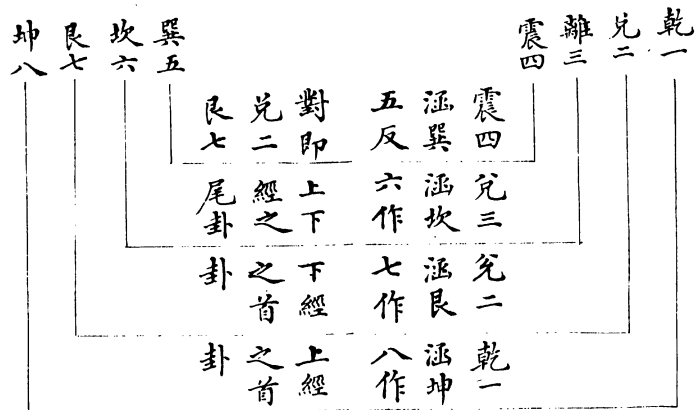 乾一
兌二
離三
震四
巽五
坎六
艮七
坤八
震四
涵巽
五反
對即
兌二
艮七
兌三
涵坎
六作
上下
經之
尾卦
兌二
涵艮
七作
下經
之首
卦
乾一
涵坤
八作
上經
之首
卦